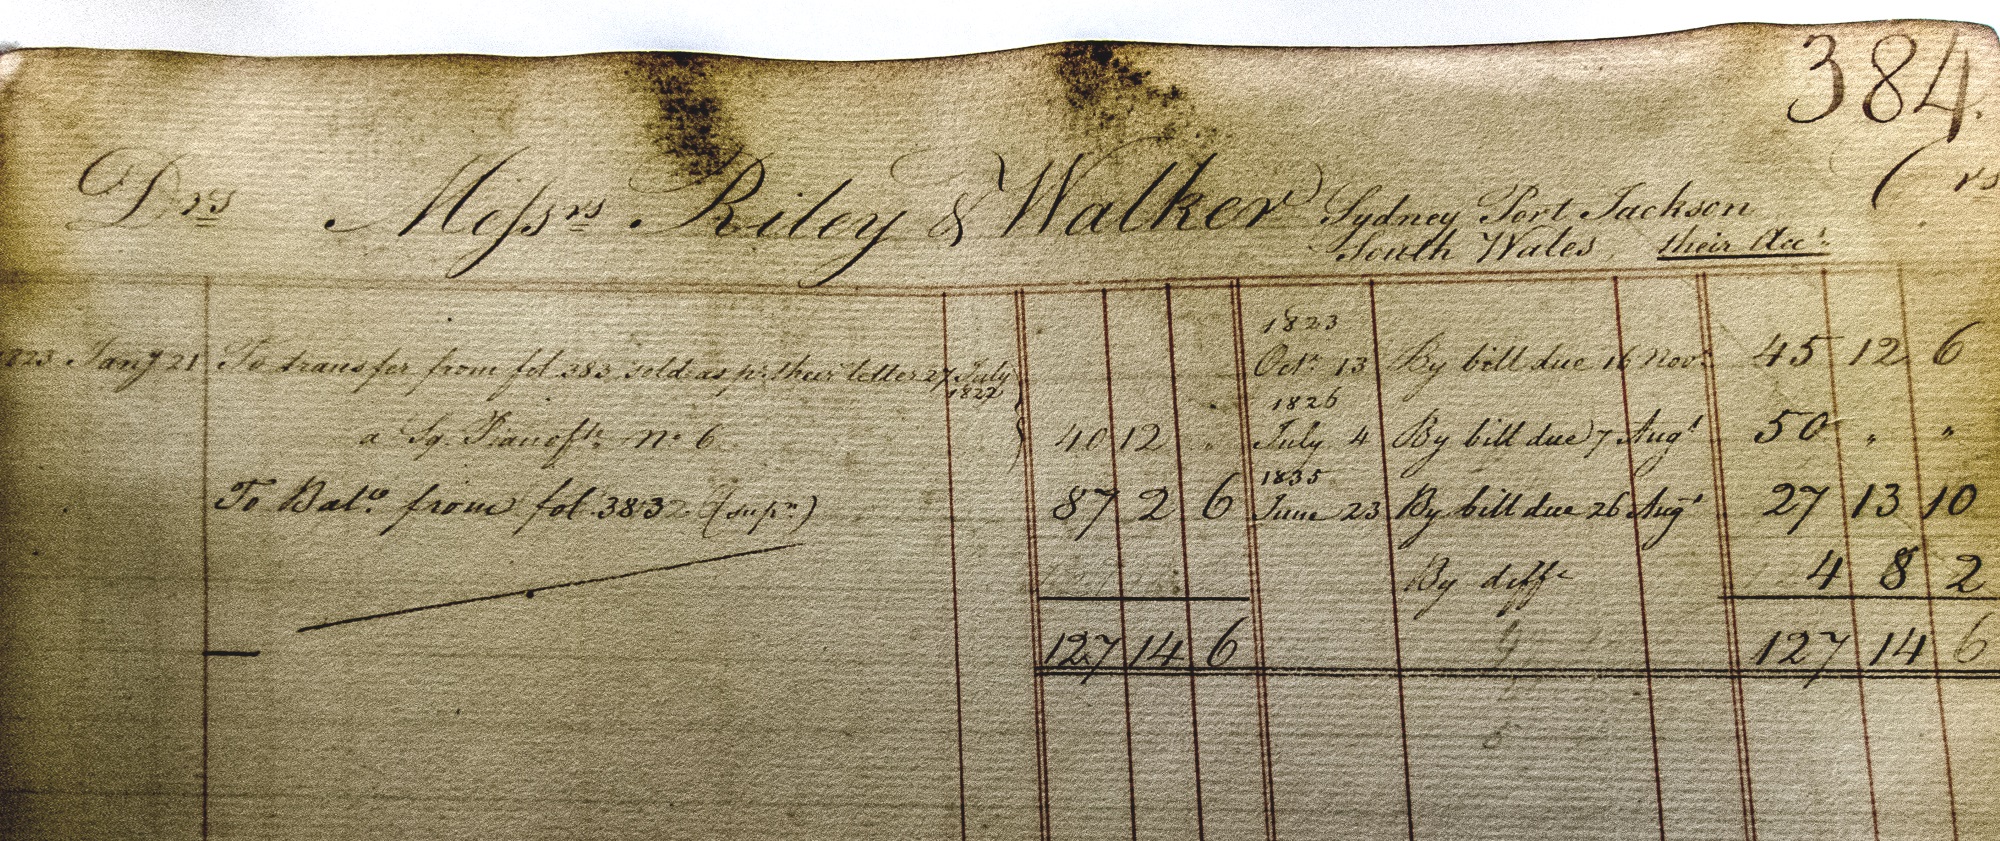 384.
Drs Messrs Riley & Walker Sydney Port Jackson Crs
South Wales, their Acct.
1823
1823 Jany 21 To transfer from fol 383, sold as pr. their letter 27 July 1822 Octr. 13 By bill due 16 Novr. 45 12 6
1826
a Sq. Pianofte. No. 6 40 12 " July 4 By bill due 7 Augt 50 " "
1835
To Balce. from fol. 383 (supn) 87 2 6 June 23 By bill due 26 Augt 27 13 10
By diffe 4 8 2
127 14 6 127 14 6